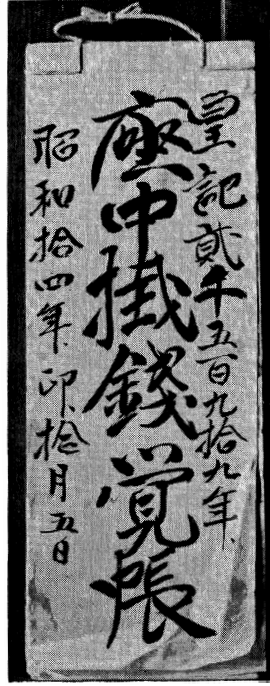 皇記貳千五百九拾九年、
座中掛錢覚帳
昭和拾四年、卯、拾月五日